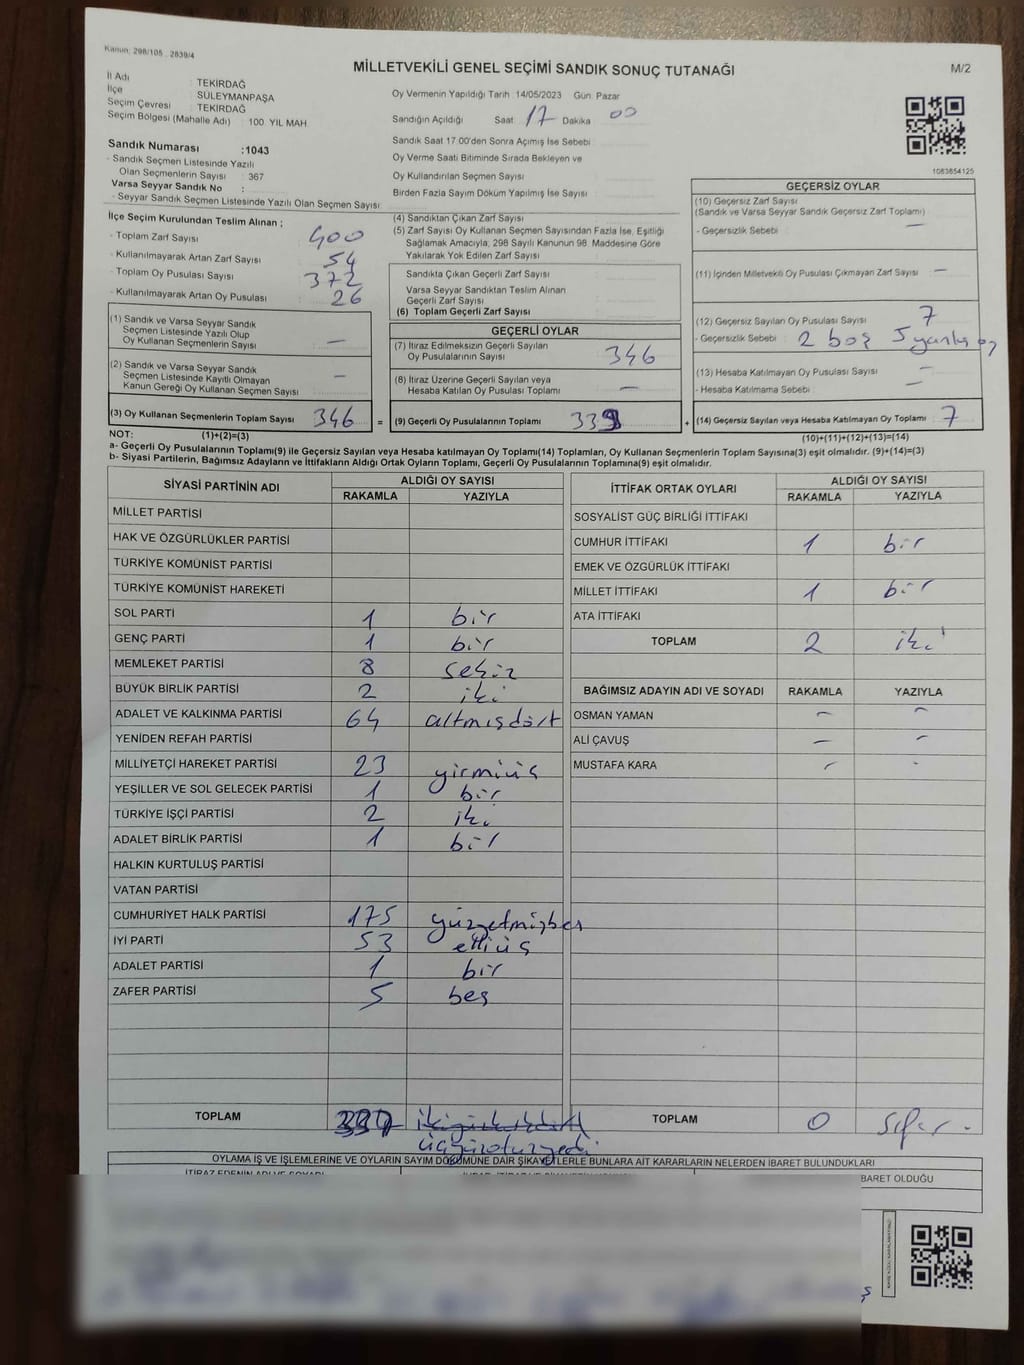 Kanun: 298/105 , 2839/4
MİLLETVEKİLİ GENEL SEÇİMİ SANDIK SONUÇ TUTANAĞI
M/2
İl Adı : TEKİRDAĞ
İlçe : SÜLEYMANPAŞA
Seçim Çevresi : TEKİRDAĞ
Seçim Bölgesi (Mahalle Adı) : 100. YIL MAH.
Sandık Numarası :1043
- Sandık Seçmen Listesinde Yazılı
Olan Seçmenlerin Sayısı : 367
Varsa Seyyar Sandık No :
- Seyyar Sandık Seçmen Listesinde Yazılı Olan Seçmen Sayısı:
Oy Vermenin Yapıldığı Tarih :14/05/2023 Gün: Pazar
Sandığın Açıldığı Saat: 17 Dakika 00
Sandık Saat 17:00'den Sonra Açımış İse Sebebi:
Oy Verme Saati Bitiminde Sırada Bekleyen ve
Oy Kullandırılan Seçmen Sayısı :
Birden Fazla Sayım Döküm Yapılmış İse Sayısı :
1083854125
İlçe Seçim Kurulundan Teslim Alınan ;
- Toplam Zarf Sayısı : 400
- Kullanılmayarak Artan Zarf Sayısı : 54
- Toplam Oy Pusulası Sayısı : 372
- Kullanılmayarak Artan Oy Pusulası : 26
(1) Sandık ve Varsa Seyyar Sandık
Seçmen Listesinde Yazılı Olup
Oy Kullanan Seçmenlerin Sayısı : —
(2) Sandık ve Varsa Seyyar Sandık
Seçmen Listesinde Kayıtlı Olmayan
Kanun Gereği Oy Kullanan Seçmen Sayısı : —
(3) Oy Kullanan Seçmenlerin Toplam Sayısı : 346 =
(4) Sandıktan Çıkan Zarf Sayısı :
(5) Zarf Sayısı Oy Kullanan Seçmen Sayısından Fazla İse, Eşitliği
Sağlamak Amacıyla; 298 Sayılı Kanunun 98. Maddesine Göre
Yakılarak Yok Edilen Zarf Sayısı :
Sandıkta Çıkan Geçerli Zarf Sayısı :
Varsa Seyyar Sandıktan Teslim Alınan
Geçerli Zarf Sayısı :
(6) Toplam Geçerli Zarf Sayısı :
GEÇERLİ OYLAR
(7) İtiraz Edilmeksizin Geçerli Sayılan
Oy Pusulalarının Sayısı : 346
(8) İtiraz Üzerine Geçerli Sayılan veya
Hesaba Katılan Oy Pusulası Toplamı : —
(9) Geçerli Oy Pusulalarının Toplamı : 339 +
GEÇERSİZ OYLAR
(10) Geçersiz Zarf Sayısı
(Sandık ve Varsa Seyyar Sandık Geçersiz Zarf Toplamı) :
- Geçersizlik Sebebi : —
(11) İçinden Milletvekili Oy Pusulası Çıkmayan Zarf Sayısı : —
(12) Geçersiz Sayılan Oy Pusulası Sayısı : 7
- Geçersizlik Sebebi : 2 boş 5 yanlış oy
(13) Hesaba Katılmayan Oy Pusulası Sayısı : —
- Hesaba Katılmama Sebebi : —
(14) Geçersiz Sayılan veya Hesaba Katılmayan Oy Toplamı : 7
NOT: (1)+(2)=(3) (10)+(11)+(12)+(13)=(14)
a- Geçerli Oy Pusulalarının Toplamı(9) ile Geçersiz Sayılan veya Hesaba katılmayan Oy Toplamı(14) Toplamları, Oy Kullanan Seçmenlerin Toplam Sayısına(3) eşit olmalıdır. (9)+(14)=(3)
b- Siyasi Partilerin, Bağımsız Adayların ve İttifakların Aldığı Ortak Oyların Toplamı, Geçerli Oy Pusulalarının Toplamına(9) eşit olmalıdır.
SİYASİ PARTİNİN ADI ALDIĞI OY SAYISI
RAKAMLA YAZIYLA
MİLLET PARTİSİ
HAK VE ÖZGÜRLÜKLER PARTİSİ
TÜRKİYE KOMÜNİST PARTİSİ
TÜRKİYE KOMÜNİST HAREKETİ
SOL PARTİ 1 bir
GENÇ PARTİ 1 bir
MEMLEKET PARTİSİ 8 sekiz
BÜYÜK BİRLİK PARTİSİ 2 iki
ADALET VE KALKINMA PARTİSİ 64 altmışdört
YENİDEN REFAH PARTİSİ
MİLLİYETÇİ HAREKET PARTİSİ 23 yirmiüş
YEŞİLLER VE SOL GELECEK PARTİSİ 1 bir
TÜRKİYE İŞÇİ PARTİSİ 2 iki
ADALET BİRLİK PARTİSİ 1 bir
HALKIN KURTULUŞ PARTİSİ
VATAN PARTİSİ
CUMHURİYET HALK PARTİSİ 175 yüzyetmişbeş
İYİ PARTİ 53 elliüş
ADALET PARTİSİ 1 bir
ZAFER PARTİSİ 5 beş
TOPLAM 337
üçyüzotuzyedi
İTTİFAK ORTAK OYLARI ALDIĞI OY SAYISI
RAKAMLA YAZIYLA
SOSYALİST GÜÇ BİRLİĞİ İTTİFAKI
CUMHUR İTTİFAKI 1 bir
EMEK VE ÖZGÜRLÜK İTTİFAKI
MİLLET İTTİFAKI 1 bir
ATA İTTİFAKI
TOPLAM 2 iki
BAĞIMSIZ ADAYIN ADI VE SOYADI RAKAMLA YAZIYLA
OSMAN YAMAN — —
ALİ ÇAVUŞ — —
MUSTAFA KARA — -
TOPLAM 0 sıfır.
OYLAMA İŞ VE İŞLEMLERİNE VE OYLARIN SAYIM DÖKÜMÜNE DAİR ŞİKAYETLERLE BUNLARA AİT KARARLARIN NELERDEN İBARET BULUNDUKLARI
BARET OLDUĞU